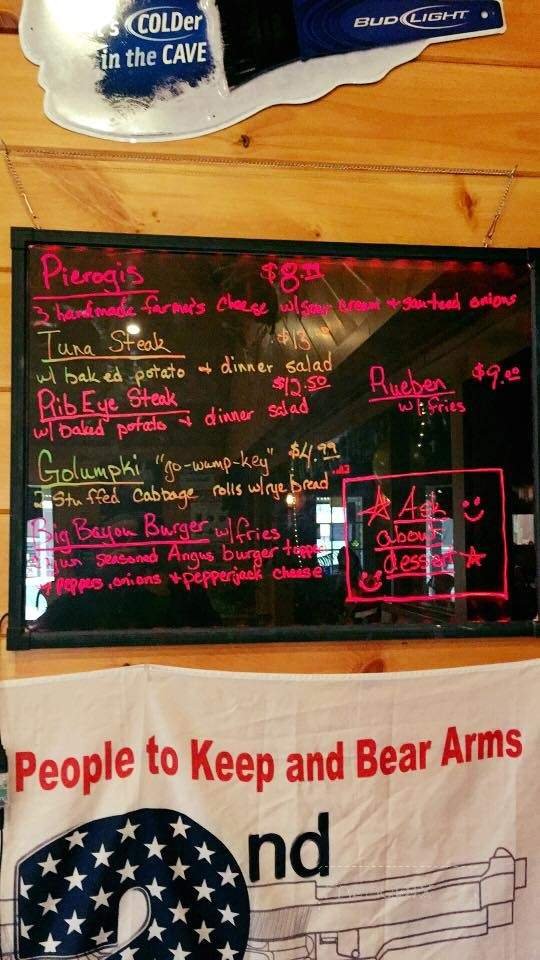 COLDer
in the CAVE
BUD LIGHT
Pierogis
3 handmade farmer's cheese w/sour cream + sauteed onions
Tuna Steak $13
w/ baked potato + dinner salad
Rib Eye Steak $12.50
w/ baked potato + dinner salad
Rueben $9.00
w/ fries
Golumpki "go-wump-key" $4.99
2 stuffed cabbage rolls w/rye bread
Big Bayou Burger w/fries
seasoned Angus burger
peppers, onions + pepperjack cheese
Ask
about
dessert
People to Keep and Bear Arms
2nd